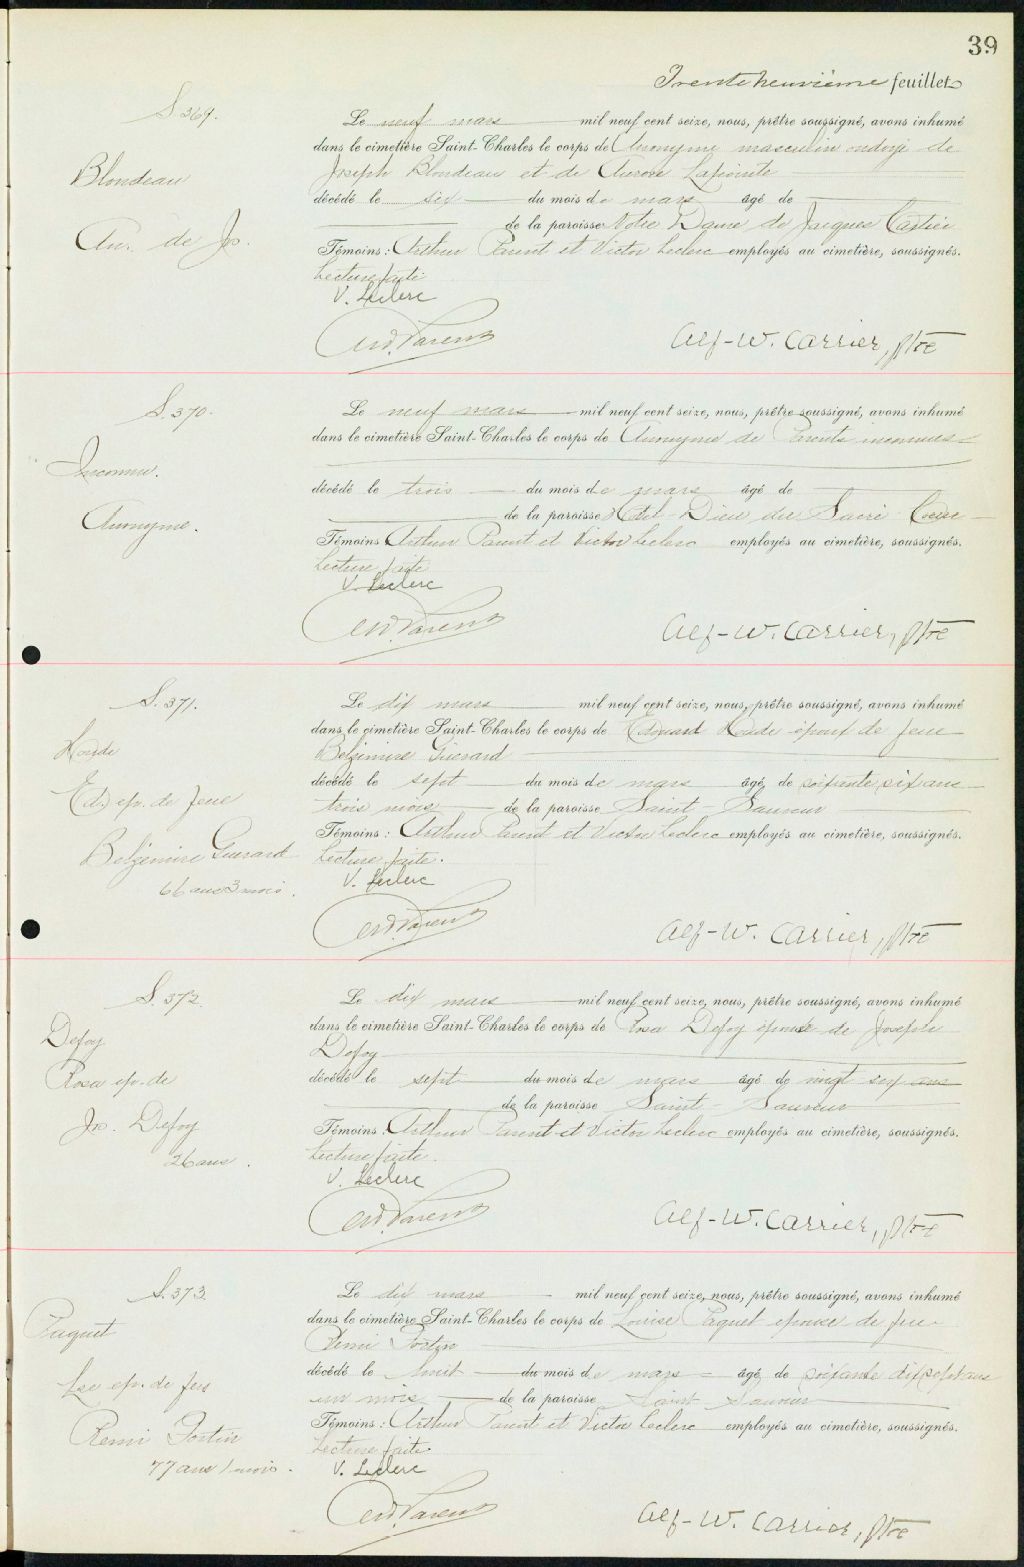 39
Trente neuvième feuillet
S. 369.
Blondeau
An. de Js.
Le neuf mars mil neuf cent seize, nous, prêtre soussigné, avons inhumé
dans le cimetière Saint-Charles le corps de Anonyme masculin ondoyé de
Joseph Blondeau et de Aurore Lapointe
décédé le six du mois de mars âgé de
de la paroisse Notre Dame de Jacques Cartier
Témoins : Arthur Parent et Victor Leclerc employés au cimetière, soussignés.
Lecture faite
V. Leclerc
Ard. Parent
Alf-W. Carrier, ptre
S. 370.
Inconnu.
Anonyme.
Le neuf mars mil neuf cent seize, nous, prêtre soussigné, avons inhumé
dans le cimetière Saint-Charles le corps de Anonyme de Parents inconnus
décédé le trois du mois de mars âgé de
de la paroisse Hôtel-Dieu du Sacré Coeur
Témoins Arthur Parent et Victor Leclerc employés au cimetière, soussignés.
Lecture faite
V. Leclerc
Ard. Parent
Alf-W. Carrier, ptre
S. 371.
Houde
Ed. ep. de feue
Belzémire Guérard
66 ans 3 mois.
Le dix mars mil neuf cent seize, nous, prêtre soussigné, avons inhumé
dans le cimetière Saint-Charles le corps de Edouard Houde époux de feue
Belzémire Guérard
décédé le sept du mois de mars âgé de soixante six ans
trois mois de la paroisse Saint-Sauveur
Témoins : Arthur Parent et Victor Leclerc employés au cimetière, soussignés.
Lecture faite.
V. Leclerc
Ard. Parent
Alf-W. Carrier, ptre
S. 372.
Defoy
Rosa ep. de
Js. Defoy
26 ans.
Le dix mars mil neuf cent seize, nous, prêtre soussigné, avons inhumé
dans le cimetière Saint-Charles le corps de Rosa Defoy épouse de Joseph
Defoy
décédé le sept du mois de mars âgé de vingt six ans
de la paroisse Saint-Sauveur
Témoins : Arthur Parent et Victor Leclerc employés au cimetière, soussignés.
Lecture faite.
V. Leclerc
Ard. Parent
Alf-W. Carrier, ptre
S. 373.
Paquet
Lse ep. de feu
Remi Fortin
77 ans 1 mois.
Le dix mars mil neuf cent seize, nous, prêtre soussigné, avons inhumé
dans le cimetière Saint-Charles le corps de Louise Paquet épouse de feu
Remi Fortin
décédé le huit du mois de mars âgé de soixante dix sept ans
un mois de la paroisse Saint Sauveur
Témoins : Arthur Parent et Victor Leclerc employés au cimetière, soussignés.
Lecture faite.
V. Leclerc
Ard. Parent
Alf-W. Carrier, ptre